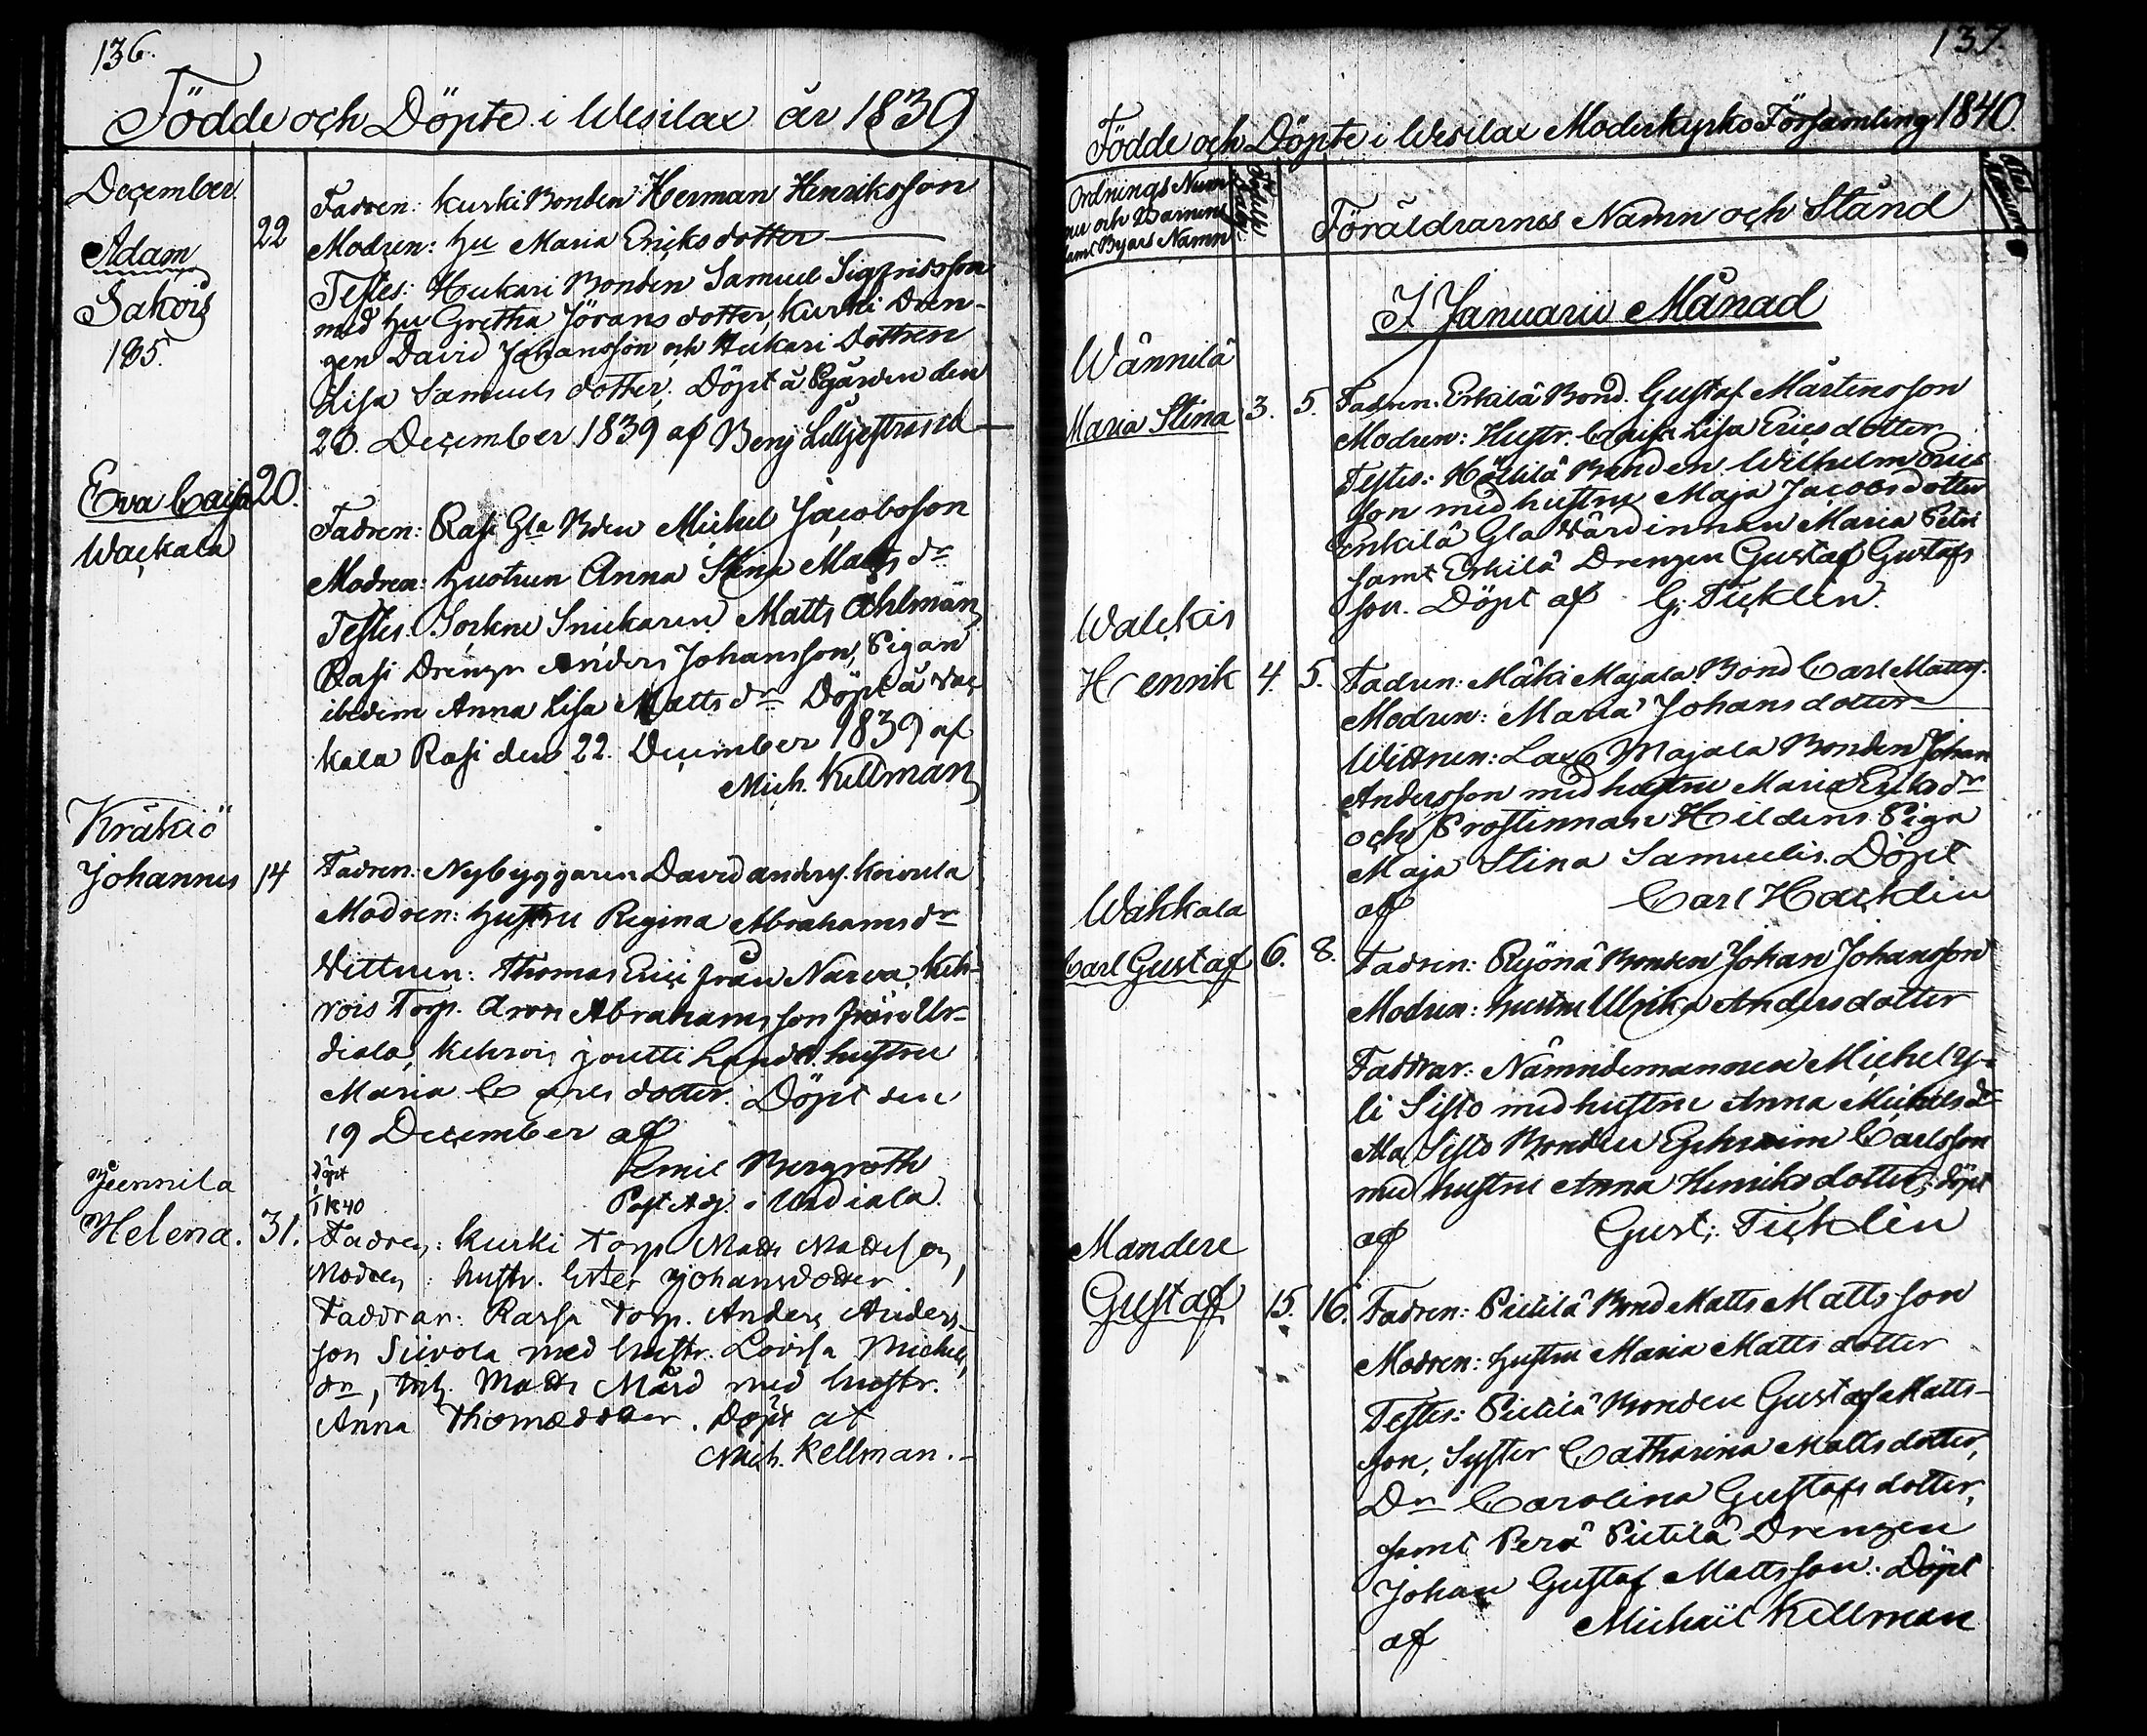 136.
Födde och Döpte i Wesilax år 1839
December
Adam
Sakois
185.
22
Fadren: Kurki Bonden Herman Henriksson
Modren: Hu Maria Ericksdotter
Testes: Heikari Bonden Samuel Sigfridsson
med Hu Gretha Jörans dotter, Kurki Dren-
gen David Johansson och Heikari Dottren
Lisa Samuels dotter. Döpt å Pgården den
26. December 1839 af Benj Liljestrand
Eva Caisa
20.
Wackala
Fadren: Rasi Gla Bden Michel Jacobsson
Modren: Hustrun Anna Stina Matts dr
Testes. Sorkne Snickaren Matts Ahlman
Rasi Drengn Anders Johansson, Pigan
ibidem Anna Lisa Matts dr Döpt å Wac
kala Rasi den 22. December 1839 af
Mich. Kellman
Kräkiö
Johannes
14
Fadren: Nybyggaren David Anderss. Koivula
Modren: Hustru Regina Abrahams dr
Vittnen: Thomas Erici från Narva, Keh-
rois Torp. Aron Abrahamsson från Ur-
diala, Kehrois Joutti Landb. hustru
Maria C dotter. Döpt den
19 December af
Emil Bergroth
Past Adj. i Urdiala.
Jennila
Helena.
31.
Döpt
1/1 1840
Fadren: Kurki Torp Matts Mattsson,
Modren: hustr. Ester Johansdotter
Faddrar: Rassa Torp. Anders Anders-
son Siivola med hustr. Lovisa Michels
dr, Inh. Matts Mård med hustr.
Anna Thomædotter. Döpt af
Mich. Kellman.-
137.
Födde och Döpte i Wesilax Moderkyrko Församling 1840.
Ordnings Num
mer och Barnens
samt Byars Namn
Födelse
Föräldrarnes Namn och Stånd
I Januarii Månad
Wännilä
Maria Stina
3.
5.
Fadren: Erkilä Bond. Gustaf Mårtensson
Modren: Hustr. Caisa Lisa Ericsdotter
Testes: Höllilä Bonden Wilhelm Erics
son med hustru Maja Jacobsdotter
Erkilä Gla Värdinnan Maria Petri
samt Erkilä Drengen Gustaf Gustafs
son. Döpt af G: Ticklén.
Walckis
Henrik
4.
5.
Fadren: Mäki Majala Bond Carl Mattss.
Modren: Maria Johansdotter
Wittnen: Laxo Majala Bonden Johan
Andersson med hustru Maria Eriks dr
och Prostinnan Hildens Piga
Maja Stina Samuelis. Döpt
af Carl Hacklin
Wakkala
Carl Gustaf
6.
8.
Fadren: Ryönä Bonden Johan Johansson
Modren: Hustru Ulrika Andersdotter
Faddrar: Nämndemannen Michel Y-
li Sifto med hustru Anna Michels dr
Ala Sifto Bonden Ephraim Carlsson
med hustru Anna Henriksdotter, döpt
af Gust: Ticklén
Mandere
Gustaf
15.
16.
Fadren: Pietilä Bond Matts Mattsson
Modren: Hustru Maria Mattsdotter
Testes: Pietilä Bonden Gustaf Matts-
son, Syster Catharina Mattsdotter,
Dn Carolina Gustafs dotter,
samt Perä Pietilä Drengen
Johan Gustaf Mattsson. Döpt
af Michaël Kellman